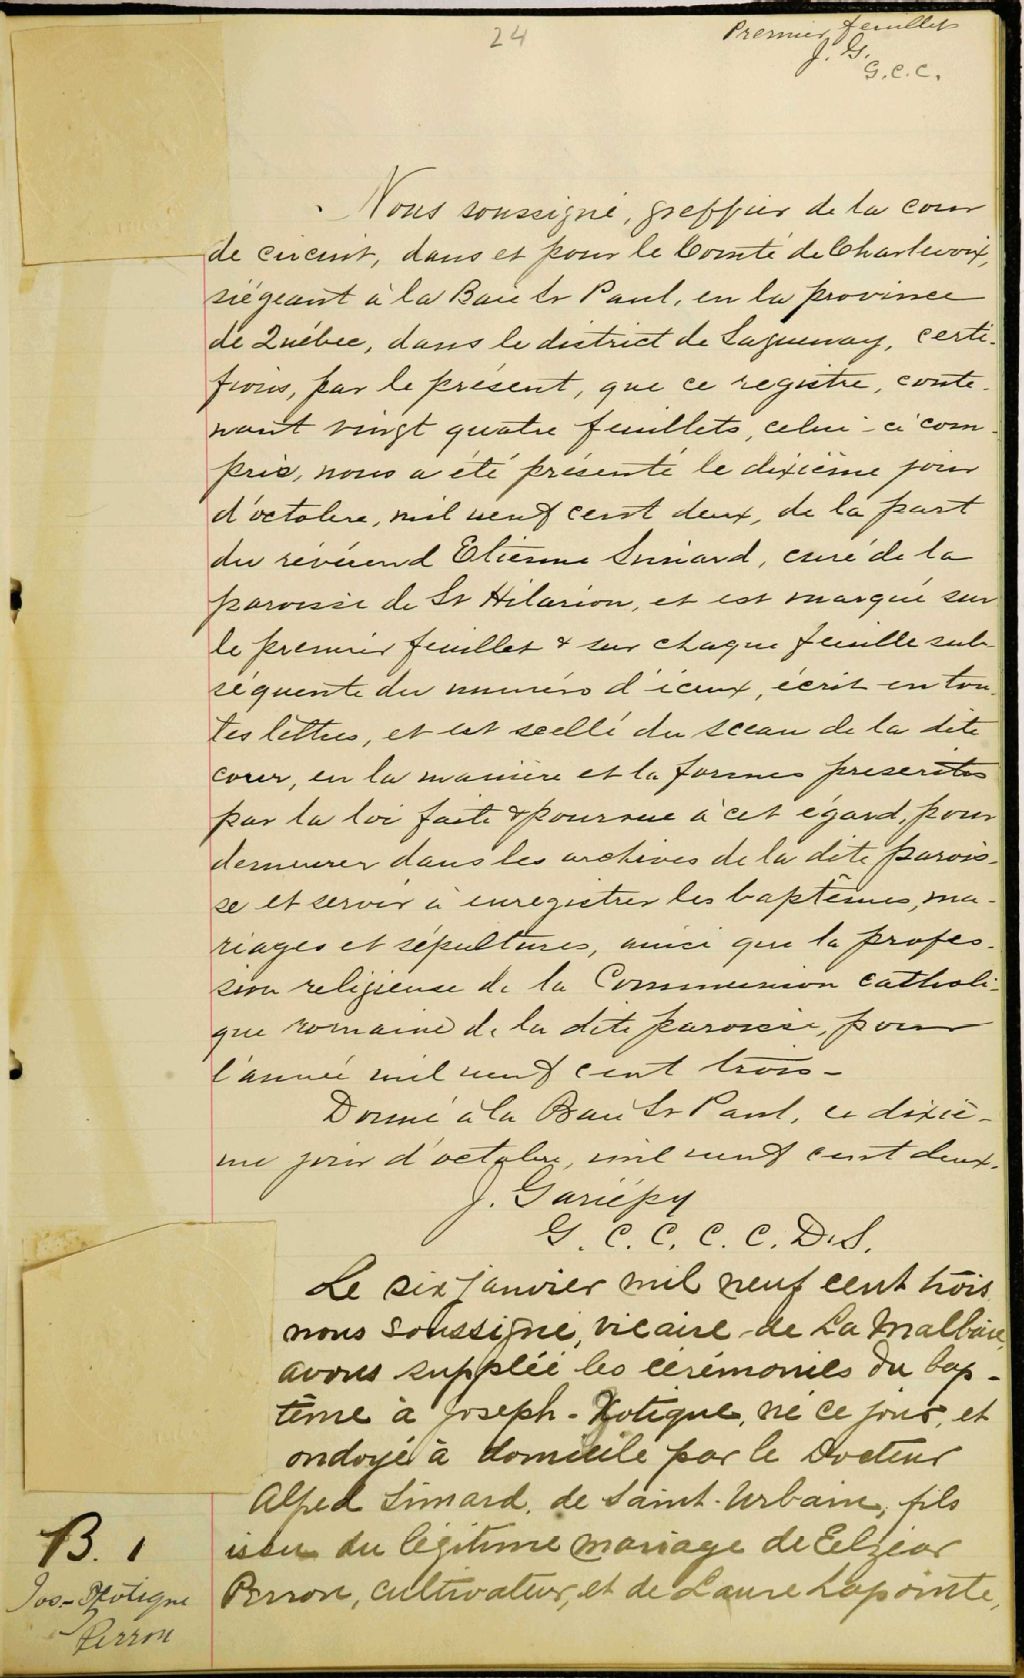 24
Premier feuillet
J. G.
G.C.C.
Nous soussigné, greffier de la cour
de circuit, dans et pour le Comté de Charlevoix,
siégeant à la Baie St Paul, en la province
de Québec, dans le district de Saguenay, certi-
fions, par le présent, que ce registre, conte-
nant vingt quatre feuillets, celui-ci com-
pris, nous a été présenté le dixième jour
d'octobre, mil neuf cent deux, de la part
du révérend Etienne Simard, curé de la
paroisse de St Hilarion, et est marqué sur
le premier feuillet & sur chaque feuille sub-
séquente du numéro d'iceux, écrit en tou-
tes lettres, et est scellé du sceau de la dite
cour, en la manière et la formes prescrites
par la loi faite & pourvue à cet égard, pour
demeurer dans les archives de la dite parois-
se et servir à enregistrer les baptêmes, ma-
riages et sépultures, ainsi que la profes-
sion religieuse de la Communion catholi-
que romaine de la dite paroisse, pour
l'année mil neuf cent trois-
Donné à la Baie St Paul, ce dixiè-
me jour d'octobre, mil neuf cent deux.
J. Gariépy
G. C. C. C. C. D. S.
Le six janvier mil neuf cent trois
nous soussigné, vicaire de La Malbaie,
avons suppléé les cérémonies du bap-
tême à Joseph-Zotique, né ce jour, et
ondoyé à domicile par le Docteur
Alfred Simard, de Saint-Urbain, fils
issu du légitime mariage de Elzéar
Perron, cultivateur, et de Laure Lapointe,
B. 1
Jos-Zotique
Perron